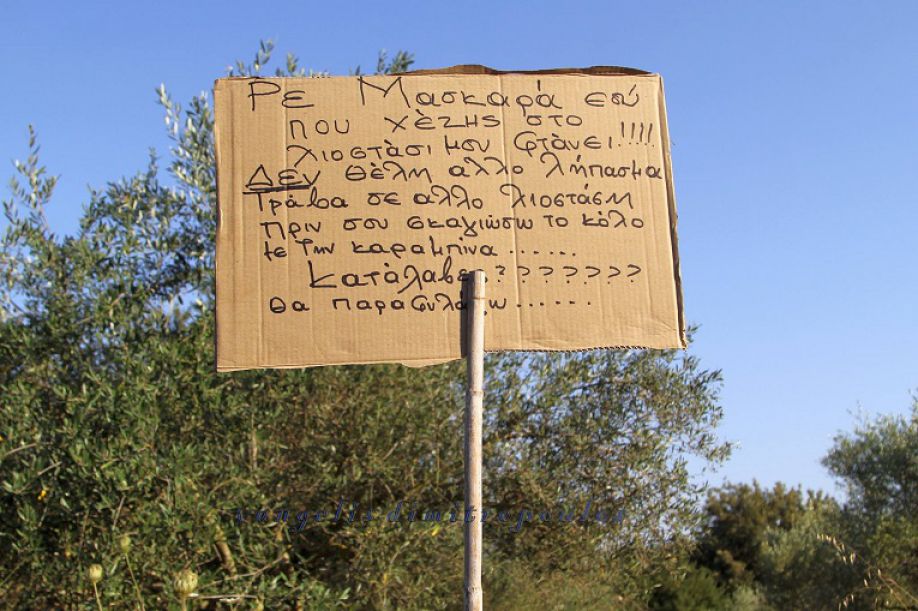 Ρε Μασκαρά εσύ
που χέζης στο
λιοστάσι μου φτάνει!!!!
ΔΕΝ θέλη αλλο λήπασμα
Τράβα σε αλλο λιοστάση
πριν σου σκαγιώσω το κόλο
με την καραμπίνα ......
Κατάλαβες???????
θα παραφυλάξω ......
vangelis dimitropoulos